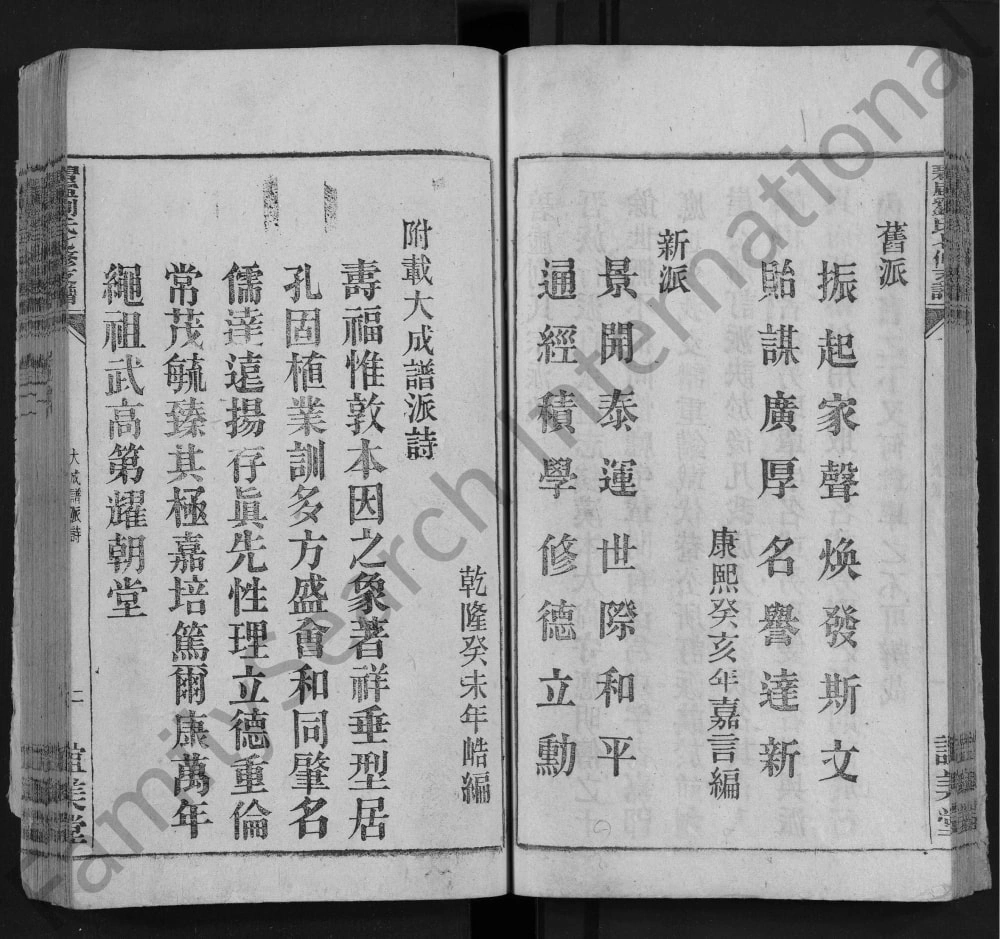 舊派
振起家聲煥發斯文
貽謀廣厚名譽達新
康熙癸亥年嘉言編
新派
景開泰運世際和平
通經積學修德立勳
乾隆癸未年峼編
附載大成譜派詩
壽福惟敦本因之象著祥垂型居
孔固植業訓多方盛會和同肇名
儒達遠揚存眞先性理立德重倫
常茂毓臻其極嘉培篤爾康萬年
繩祖武高第耀朝堂
大成譜派詩
二
FamilySearch International